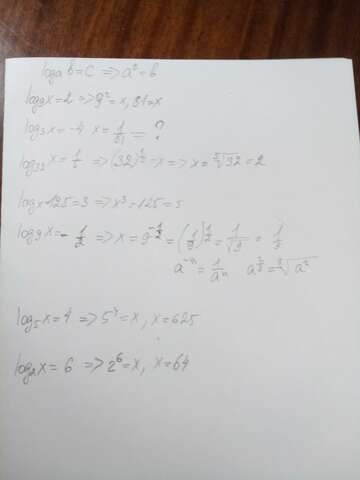 log_a b = c => a^c = b
log_9 x = 2 => 9² = x, 81 = x
log_3 x = -4 x = 1/81 = ?
log_32 x = 1/5 => (32)^(1/5) = x => x = ⁵√32 = 2
log_x 125 = 3 => x³ = 125 = 5
log_9 x = -1/2 => x = 9^(-1/2) = (1/9)^(1/2) = 1/√9 = 1/3
a^(-n) = 1/a^n
log_5 x = 4 => 5⁴ = x, x = 625
log_2 x = 6 => 2⁶ = x, x = 64